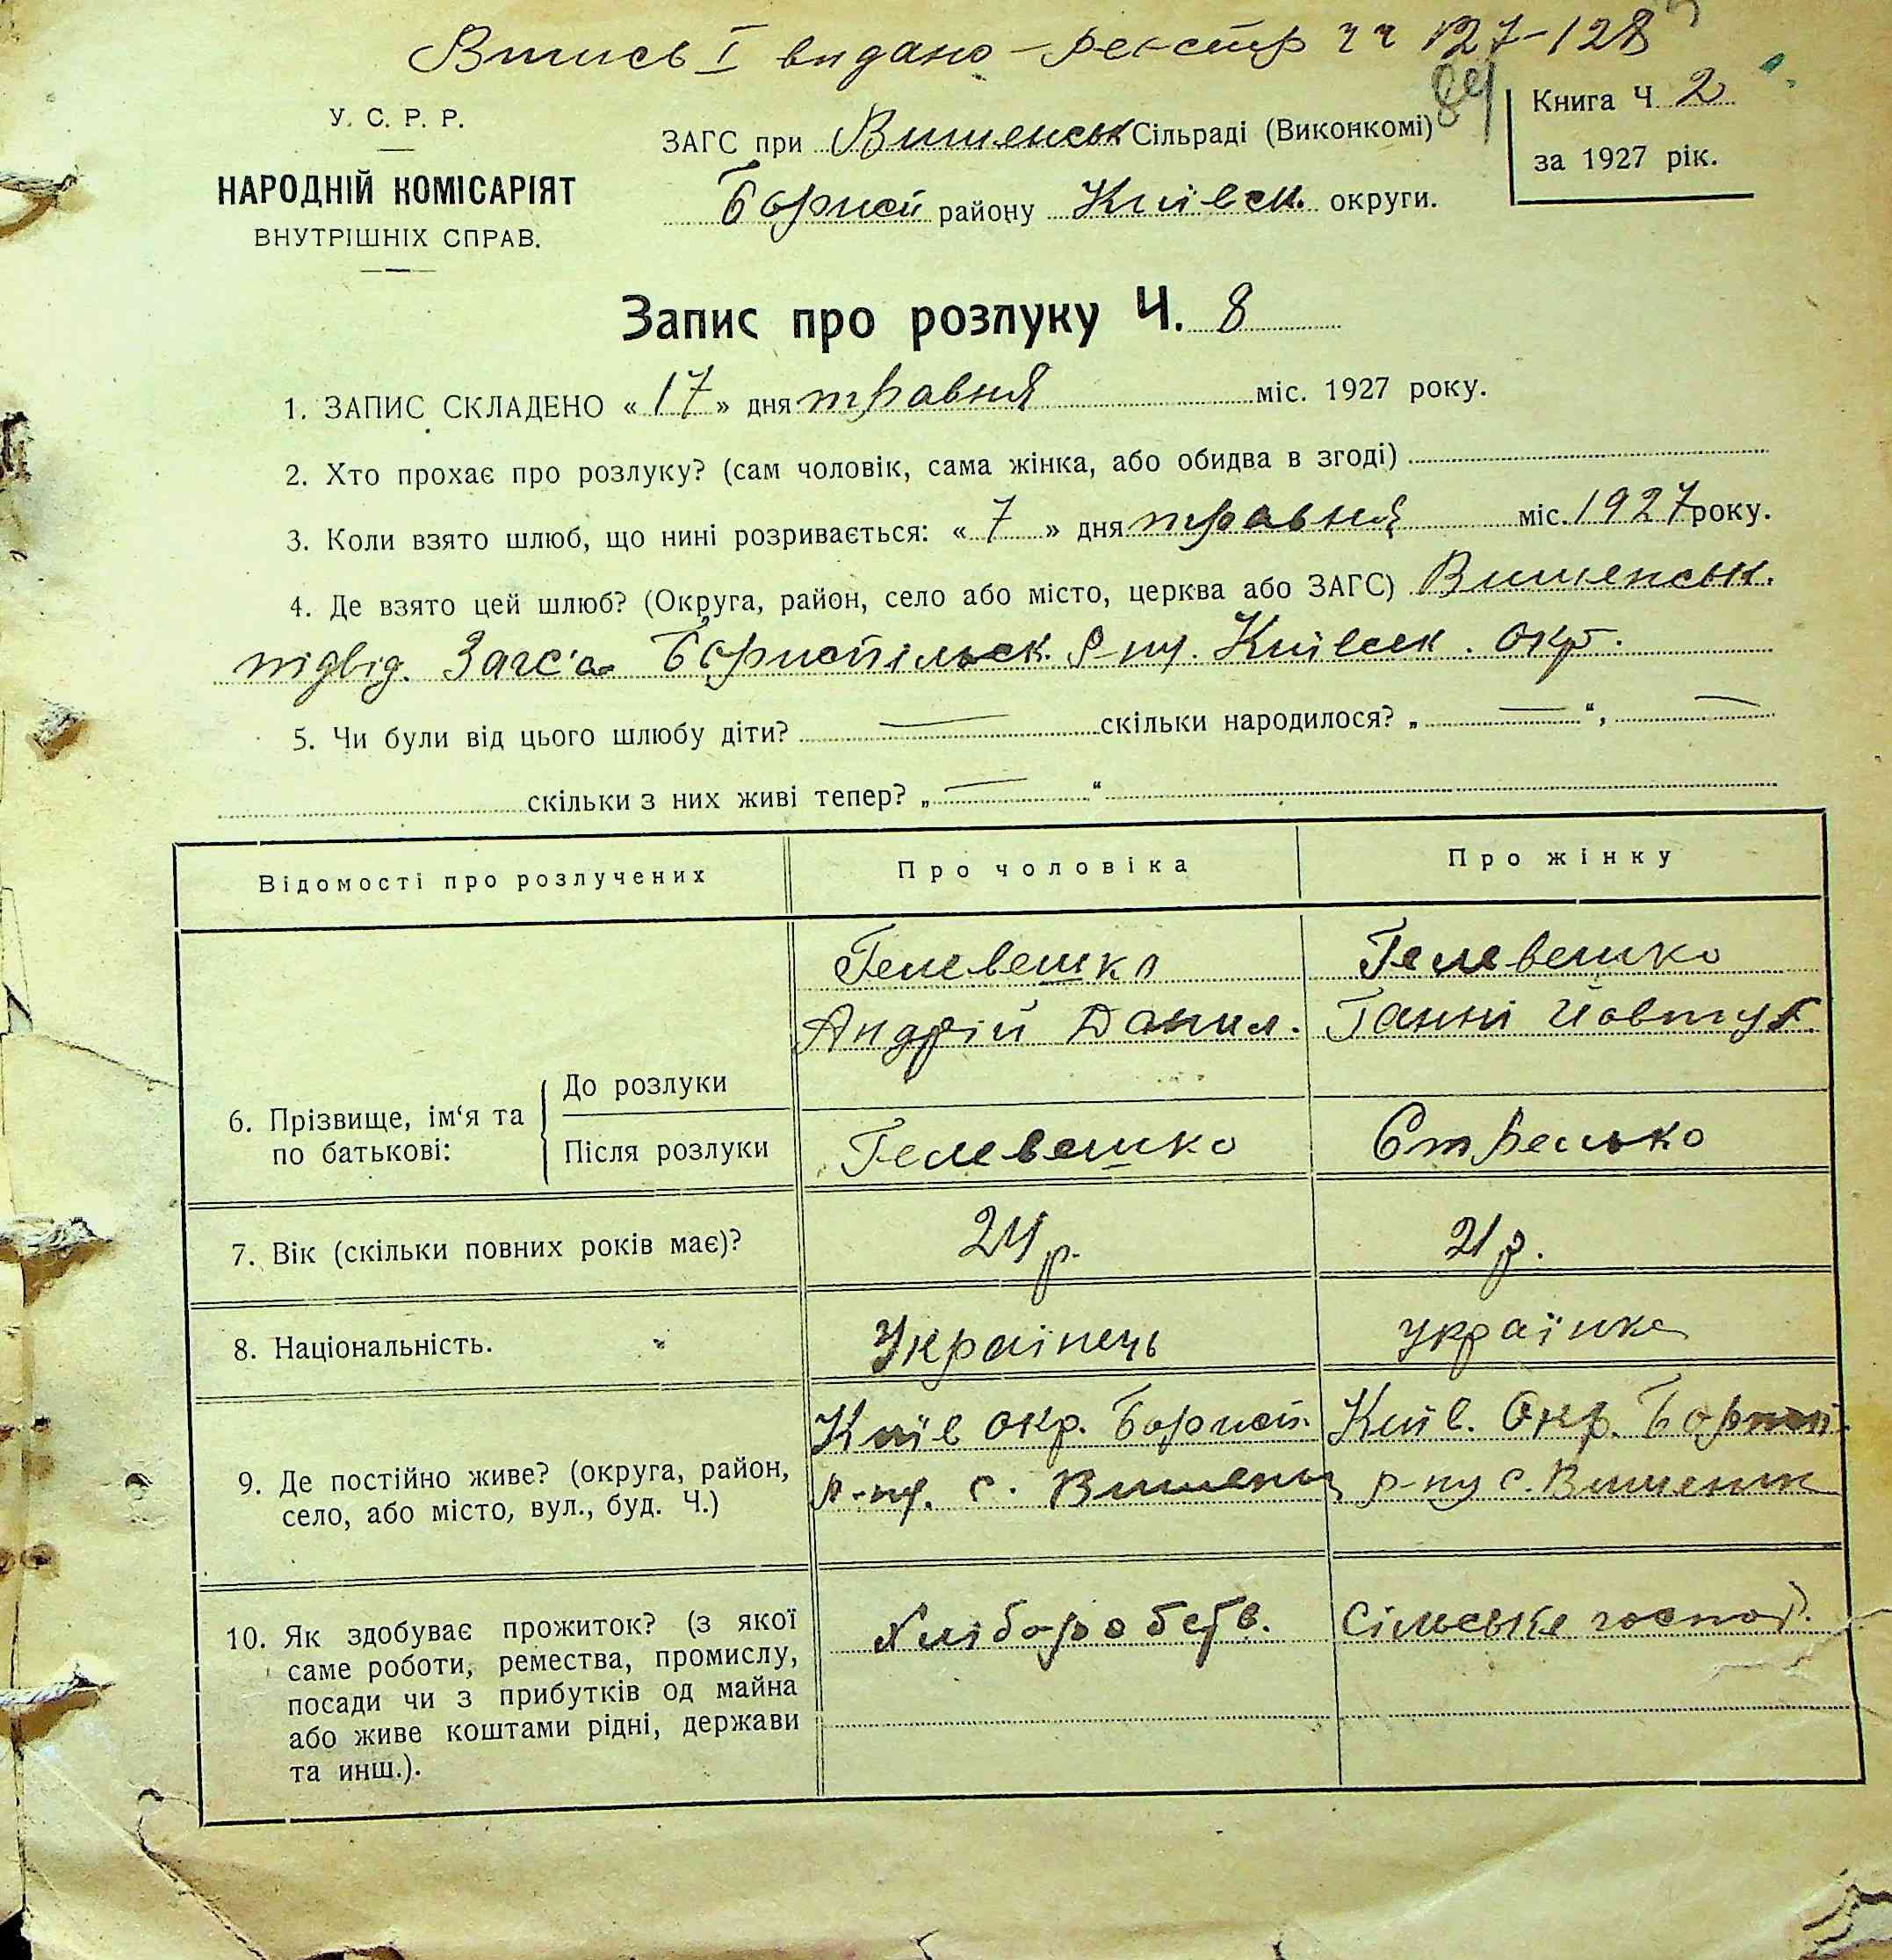 Впись I видано - реєстр чч 127-128
84
У. С. Р. Р.
НАРОДНІЙ КОМІСАРІЯТ
ВНУТРІШНІХ СПРАВ.
ЗАГС при Вишенськ Сільраді (Виконкомі)
Борисп району Київск. округи.
Книга Ч 2
за 1927 рік.
Запис про розлуку Ч. 8
1. ЗАПИС СКЛАДЕНО « 17 » дня травня міс. 1927 року.
2. Хто прохає про розлуку? (сам чоловік, сама жінка, або обидва в згоді)
3. Коли взято шлюб, що нині розривається: « 7 » дня травня міс. 1927 року.
4. Де взято цей шлюб? (Округа, район, село або місто, церква або ЗАГС) Вишенськ.
підвід. Загс'а Бориспільск. р-ну. Київск. окр.
5. Чи були від цього шлюбу діти? — скільки народилося? „ — “, —
скільки з них живі тепер? „ — “
Відомості про розлучених
Про чоловіка
Про жінку
6. Прізвище, ім‘я та по батькові:
До розлуки
Гелевешко
Андрій Данил.
Гелевешко
Ганні
Після розлуки
Гелевешко
Стрелько
7. Вік (скільки повних років має)?
24 р.
21 р.
8. Національність.
Українець
українка
9. Де постійно живе? (округа, район,
село, або місто, вул., буд. Ч.)
Київ окр. Борисп.
р-ну. с. Вишеньк
Київ. Окр. Борисп.
р-ну с. Вишеньк
10. Як здобуває прожиток? (з якої
саме роботи, ремества, промислу,
посади чи з прибутків од майна
або живе коштами рідні, держави
та инш.).
Хліборобств.
Сільське госпо